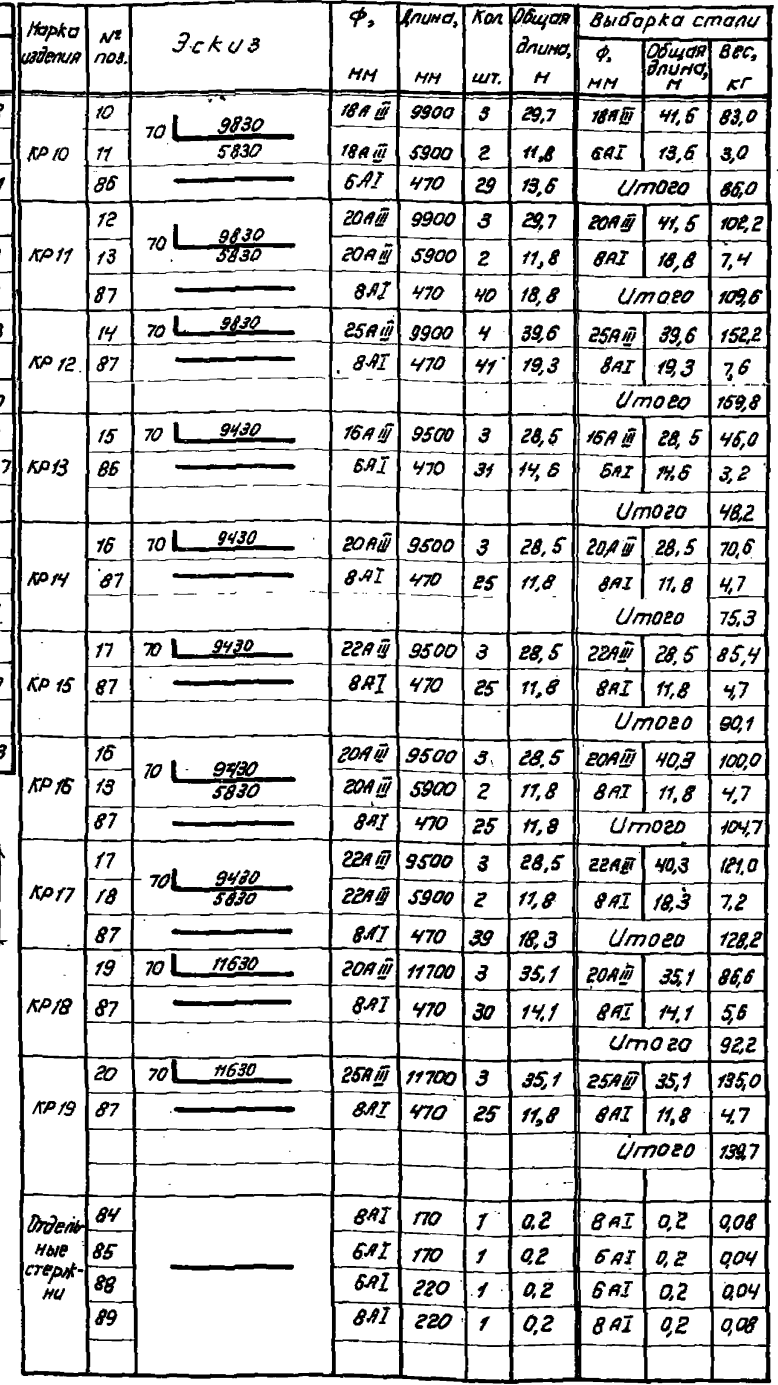 Марка изделия | № поз. | Эскиз | Ф, мм | Длина, мм | Кол шт. | Общая длина, м | Выборка стали
Ф, мм | Общая длина, м | Вес, кг
10 | 70 9830 | 18АIII | 9900 | 3 | 29,7 | 18АIII | 41,6 | 83,0
КР 10 | 11 | 5830 | 18АIII | 5900 | 2 | 11,8 | 6АI | 13,6 | 3,0
86 | 6АI | 470 | 29 | 13,6 | Итого | 86,0
12 | 70 9830 | 20АIII | 9900 | 3 | 29,7 | 20АIII | 41,5 | 102,2
КР11 | 13 | 5830 | 20АIII | 5900 | 2 | 11,8 | 8АI | 18,8 | 7,4
87 | 8АI | 470 | 40 | 18,8 | Итого | 109,6
14 | 70 9830 | 25АIII | 9900 | 4 | 39,6 | 25АIII | 39,6 | 152,2
КР 12 | 87 | 8АI | 470 | 41 | 19,3 | 8АI | 19,3 | 7,6
Итого | 159,8
15 | 70 9430 | 16АIII | 9500 | 3 | 28,5 | 16АIII | 28,5 | 45,0
КР13 | 86 | 6АI | 470 | 31 | 14,6 | 6АI | 14,6 | 3,2
Итого | 48,2
16 | 70 9430 | 20АIII | 9500 | 3 | 28,5 | 20АIII | 28,5 | 70,6
КР 14 | 87 | 8АI | 470 | 25 | 11,8 | 8АI | 11,8 | 4,7
Итого | 75,3
17 | 70 9430 | 22АIII | 9500 | 3 | 28,5 | 22АIII | 28,5 | 85,4
КР 15 | 87 | 8АI | 470 | 25 | 11,8 | 8АI | 11,8 | 4,7
Итого | 90,1
16 | 70 9430 | 20АIII | 9500 | 3 | 28,5 | 20АIII | 40,3 | 100,0
КР 16 | 13 | 5830 | 20АIII | 5900 | 2 | 11,8 | 8АI | 11,8 | 4,7
87 | 8АI | 470 | 25 | 11,8 | Итого | 104,7
17 | 70 9430 | 22АIII | 9500 | 3 | 28,5 | 22АIII | 40,3 | 121,0
КР17 | 18 | 5830 | 22АIII | 5900 | 2 | 11,8 | 8АI | 18,3 | 7,2
87 | 8АI | 470 | 39 | 18,3 | Итого | 128,2
19 | 70 11630 | 20АIII | 11700 | 3 | 35,1 | 20АIII | 35,1 | 86,6
КР18 | 87 | 8АI | 470 | 30 | 14,1 | 8АI | 14,1 | 5,6
Итого | 92,2
20 | 70 11630 | 25АIII | 11700 | 3 | 35,1 | 25АIII | 35,1 | 135,0
КР 19 | 87 | 8АI | 470 | 25 | 11,8 | 8АI | 11,8 | 4,7
Итого | 139,7
Отдельные стержни | 84 | 8АI | 170 | 1 | 0,2 | 8АI | 0,2 | 0,08
85 | 6АI | 170 | 1 | 0,2 | 6АI | 0,2 | 0,04
88 | 6АI | 220 | 1 | 0,2 | 6АI | 0,2 | 0,04
89 | 8АI | 220 | 1 | 0,2 | 8АI | 0,2 | 0,08